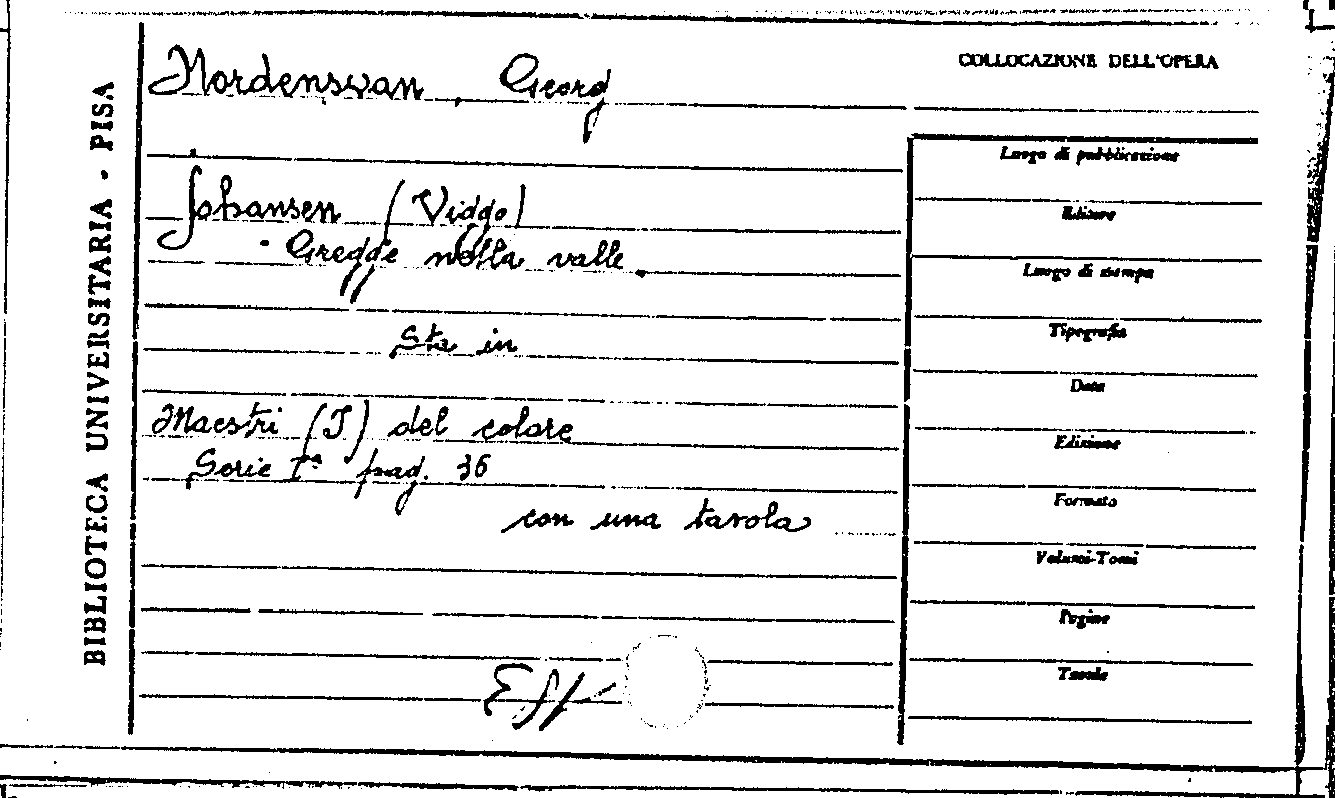 BIBLIOTECA UNIVERSITARIA - PISA
Nordensvan, Georg
COLLOCAZIONE DELL'OPERA
Johansen (Viggo)
- Gregge nella valle.
Sta in
Maestri (I) del colore
Serie Iª pag. 36
con una tavola
Luogo di pubblicazione
Editore
Luogo di stampa
Tipografia
Data
Edizione
Formato
Volumi-Tomi
Pagine
Tavole